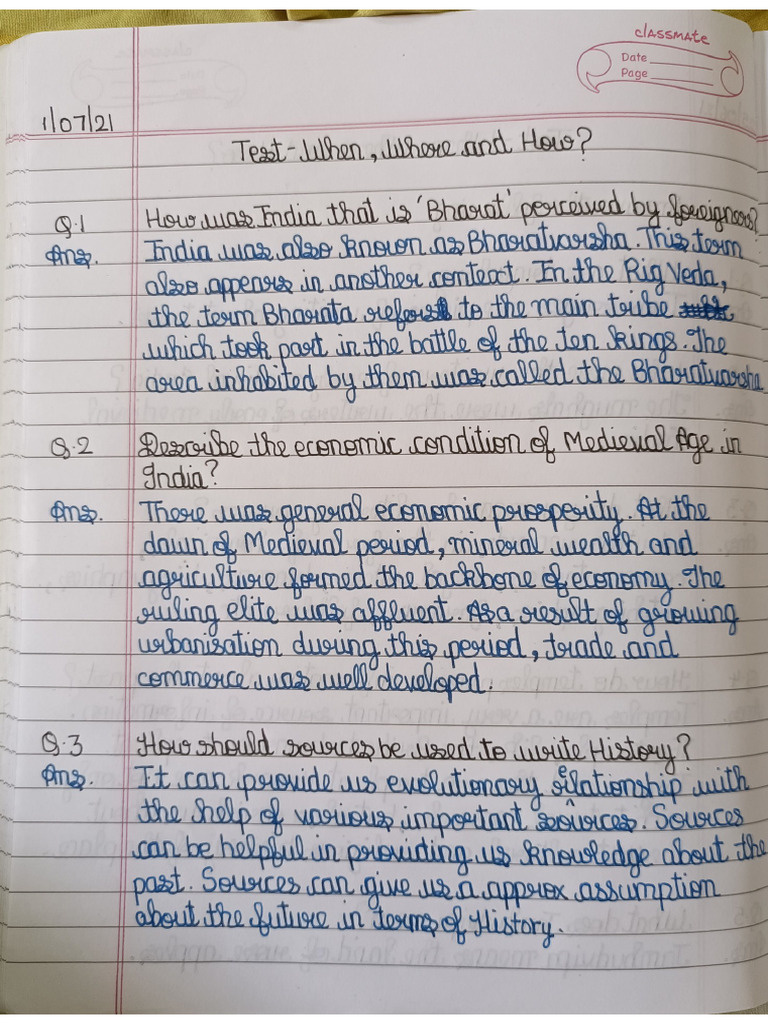 classmate
Date
Page
1/07/21
Test - When, Where and How?
Q.1 How was India that is 'Bharat' perceived by foreigners?
Ans. India was also known as Bharatvarsha. This term
also appears in another context. In the Rig Veda,
the term Bharata refers to the main tribe
which took part in the battle of the ten kings. The
area inhabited by them was called the Bharatvarsha
Q.2 Describe the economic condition of Medieval Age in
India?
Ans. There was general economic prosperity. At the
dawn of Medieval period, mineral wealth and
agriculture formed the backbone of economy. The
ruling elite was affluent. As a result of growing
urbanisation during this period, trade and
commerce was well developed.
Q.3 How should sources be used to write History?
Ans. It can provide us evolutionary relationship with
the help of various important sources. Sources
can be helpful in providing us knowledge about the
past. Sources can give us a approx assumption
about the future in terms of History.